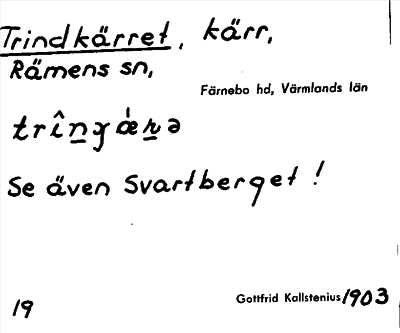 Trindkärret, kärr,
Rämens sn,
Färnebo hd, Värmlands län
Se även Svartberget!
Gottfrid Kallstenius 1903
19